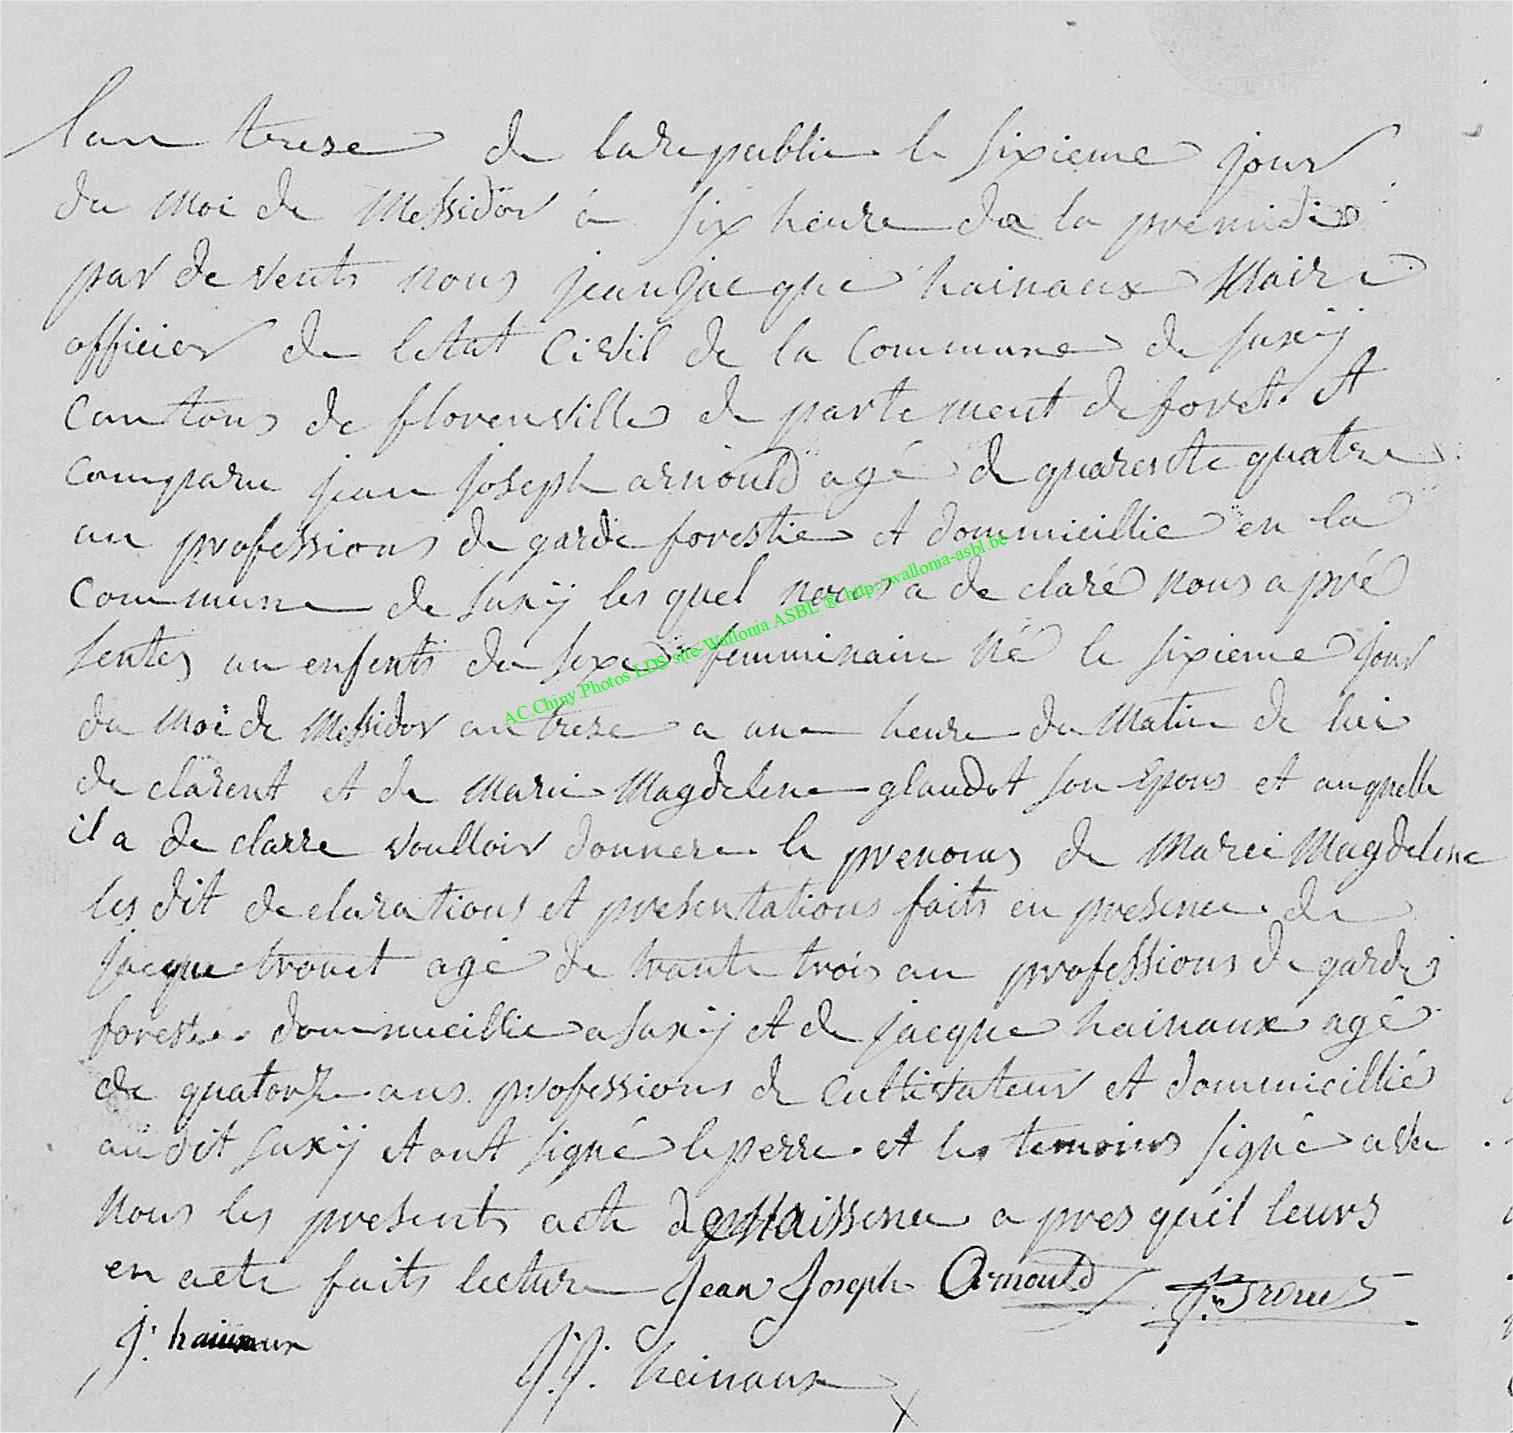 lan treze de larepublie le sixieme jour
du moi de Messidor à six heure de la premidi
par de vents nous jean jacque hainaux Maire
officier de letat Civil de la Commune de Suxÿ
Cantons de florenville de partement de foret. et
comparu jean joseph arnould agé de quarente quatre
an professions de garde forestie et dommicillie en la
Commune de Suxÿ les quel nous a de claré nous a pré
sentes un enfents du sexe femminain né le sixieme jour
du moi de Messidor an treze a une heure du matin de lui
de clarent et de Marie Magdelene glaudot son Epous et auquelle
il a de clarre voulloir donnere le prenoms de Marie Magdelene
les dit declarations et presentations faits en presence de
jacque trouet agé de trante trois an professions de garde
forestie dommicillie a Suxÿ et de jacque hainaux agé
de quatorze ans professions de Cultivateur et dommicillié
au dit Suxÿ et ont signé le perre et les temoins signé avec
nous les presents acte de Naissence a pres quil leurs
en aete faits lecture Jean Joseph Arnould J. Trouet
j. hainaux
J.J. heinaux
AC Chiny Photos LDS site Wallonia ASBL ® http://wallonia-asbl.be